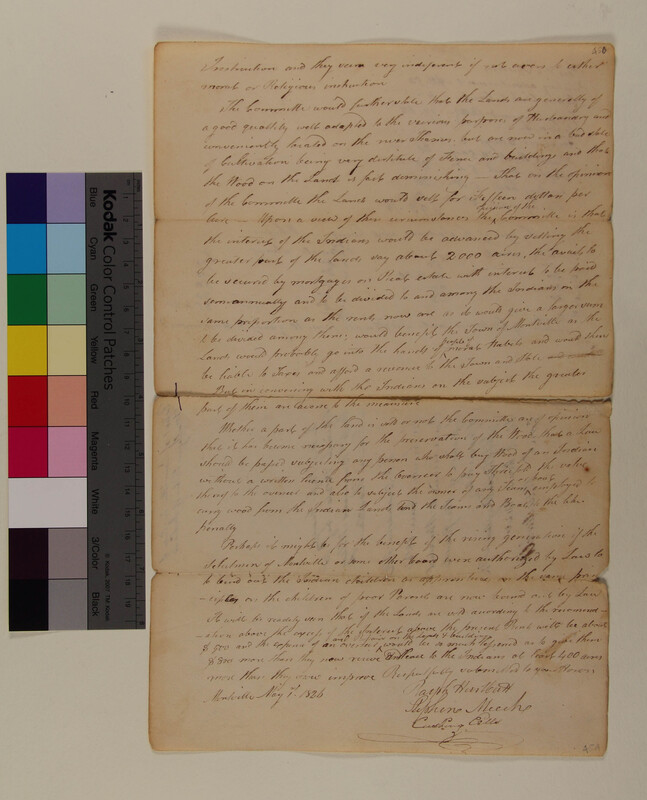 Institution and they seem very indifferent if not averse to either
moral or Religious instruction
The Committee would further state that the Lands are generally of
a good quality well adapted to the various purposes of Husbandry and
conveniently located on the river Thames. but are now in a bad state
of Cultivation being very destitute of Fence and buildings and that
the Wood on the Land is fast deminishing — That in the opinion
of the Committee the Lands would sell for Fifteen dollars per
Acre — Upon a view of these circumstances the opinion of the Committee is that
the interest of the Indians would be advanced by selling the
greater part of the Lands say about 2000 acres, the avails to
be secured by mortgages on Real estate with interest to be paid
semiannually and to be divided to and among the Indians in the
same proportion as the rents now are as it would give a larger sum
to be divided among them; would benefit the Town of Montville as the
Lands would probably go into the hands of people of Habits and would then
be liable to Taxes and afford a revenue to the Town and State
But in conversing with the Indians on the subject the greater
part of them are averse to the measure
Whether a part of the Land is sold or not the Committee are of opinion
that it has become necessary for the preservation of the Wood that a Law
should be passed subjecting any person who shall buy Wood of an Indian
without a written licence from the Overseer to pay the value
thereof to the owner and also to subject the owner of any Team or boat employed to
carry wood from the Indian Land and the Team and Boat to the like
penalty
Perhaps it might be for the benefit of the rising generation if the
Selectmen of Montville or some other board were authorised by Law to
to bind out the Indian children as apprentices on the same
as the children of poor Parents are now bound out by Law
It will be readily seen that if the Lands are sold according to the recommend-
-ation above the excess of the interest above the present Rent will be about
$ 500 and the expense of an overseer would be so much lessened as to give them
$ 800 more than they now receive to the Indians at least 400 acres
more than they now improve Respectfully submitted to your Honors
Montville May 1st. 1826
Ralph Hurlbutt
Stephen Meech
Cushing Eells
Kodak Color Control Patches
Blue
Cyan
Green
Yellow
Red
Magenta
White
3/Color
Black
© Kodak, 2007 TM: Kodak